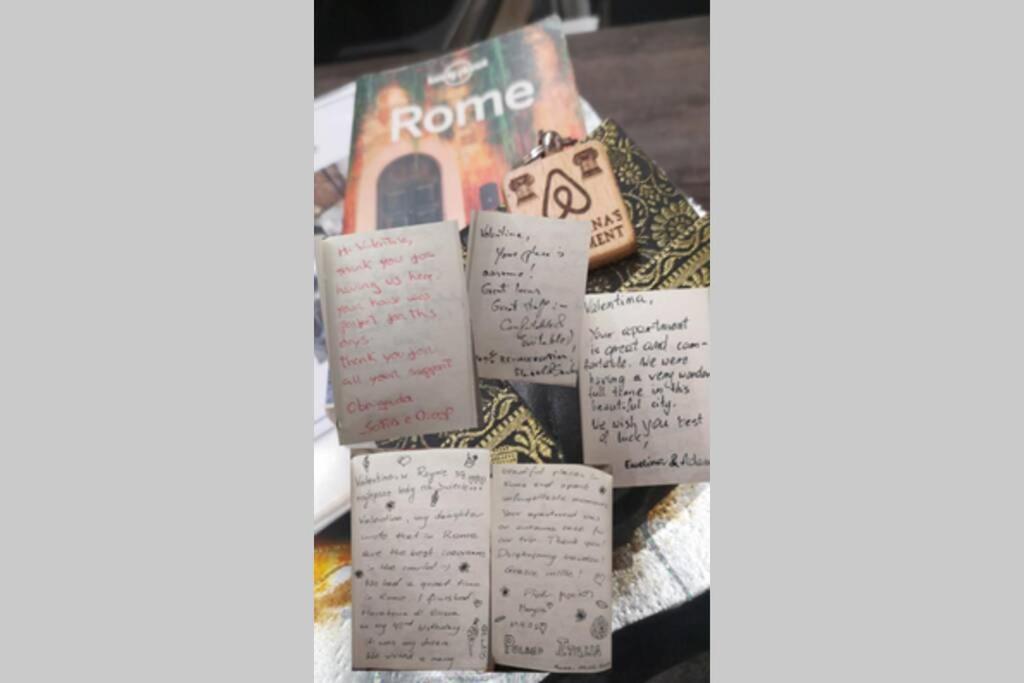 lonely planet
Rome
NA'S
MENT
Hi Valentina,
thank you for
having us here.
your house was
perfect for this
days.
thank you for
all your support
Obrigada
Sofia e Diogo
Valentina,
Your place is
awesome!
Great
Great
Comfortable &
Suitable)
Valentina,
Your apartment
is great and com-
fortable. We were
having a very wonder
full thime in this
beautiful city.
We wish you best
of luck!
Ewelina &
Valentina w Rzymie są
najlepsze lody na świecie
Valentina, my daughter
wrote that in Rome
are the best icecreams
in the world :)
We had a great time
in Rome. I finished
Maratona di Roma
on my birthday
It was my dream
We visited a many
beautiful places in
Rome and spent
unforgettable moments
Your apartment was
an awesome base for
our trip. Thank you!
Dziękujemy bardzo!
Grazie mille!
Piotr
Poland Italia